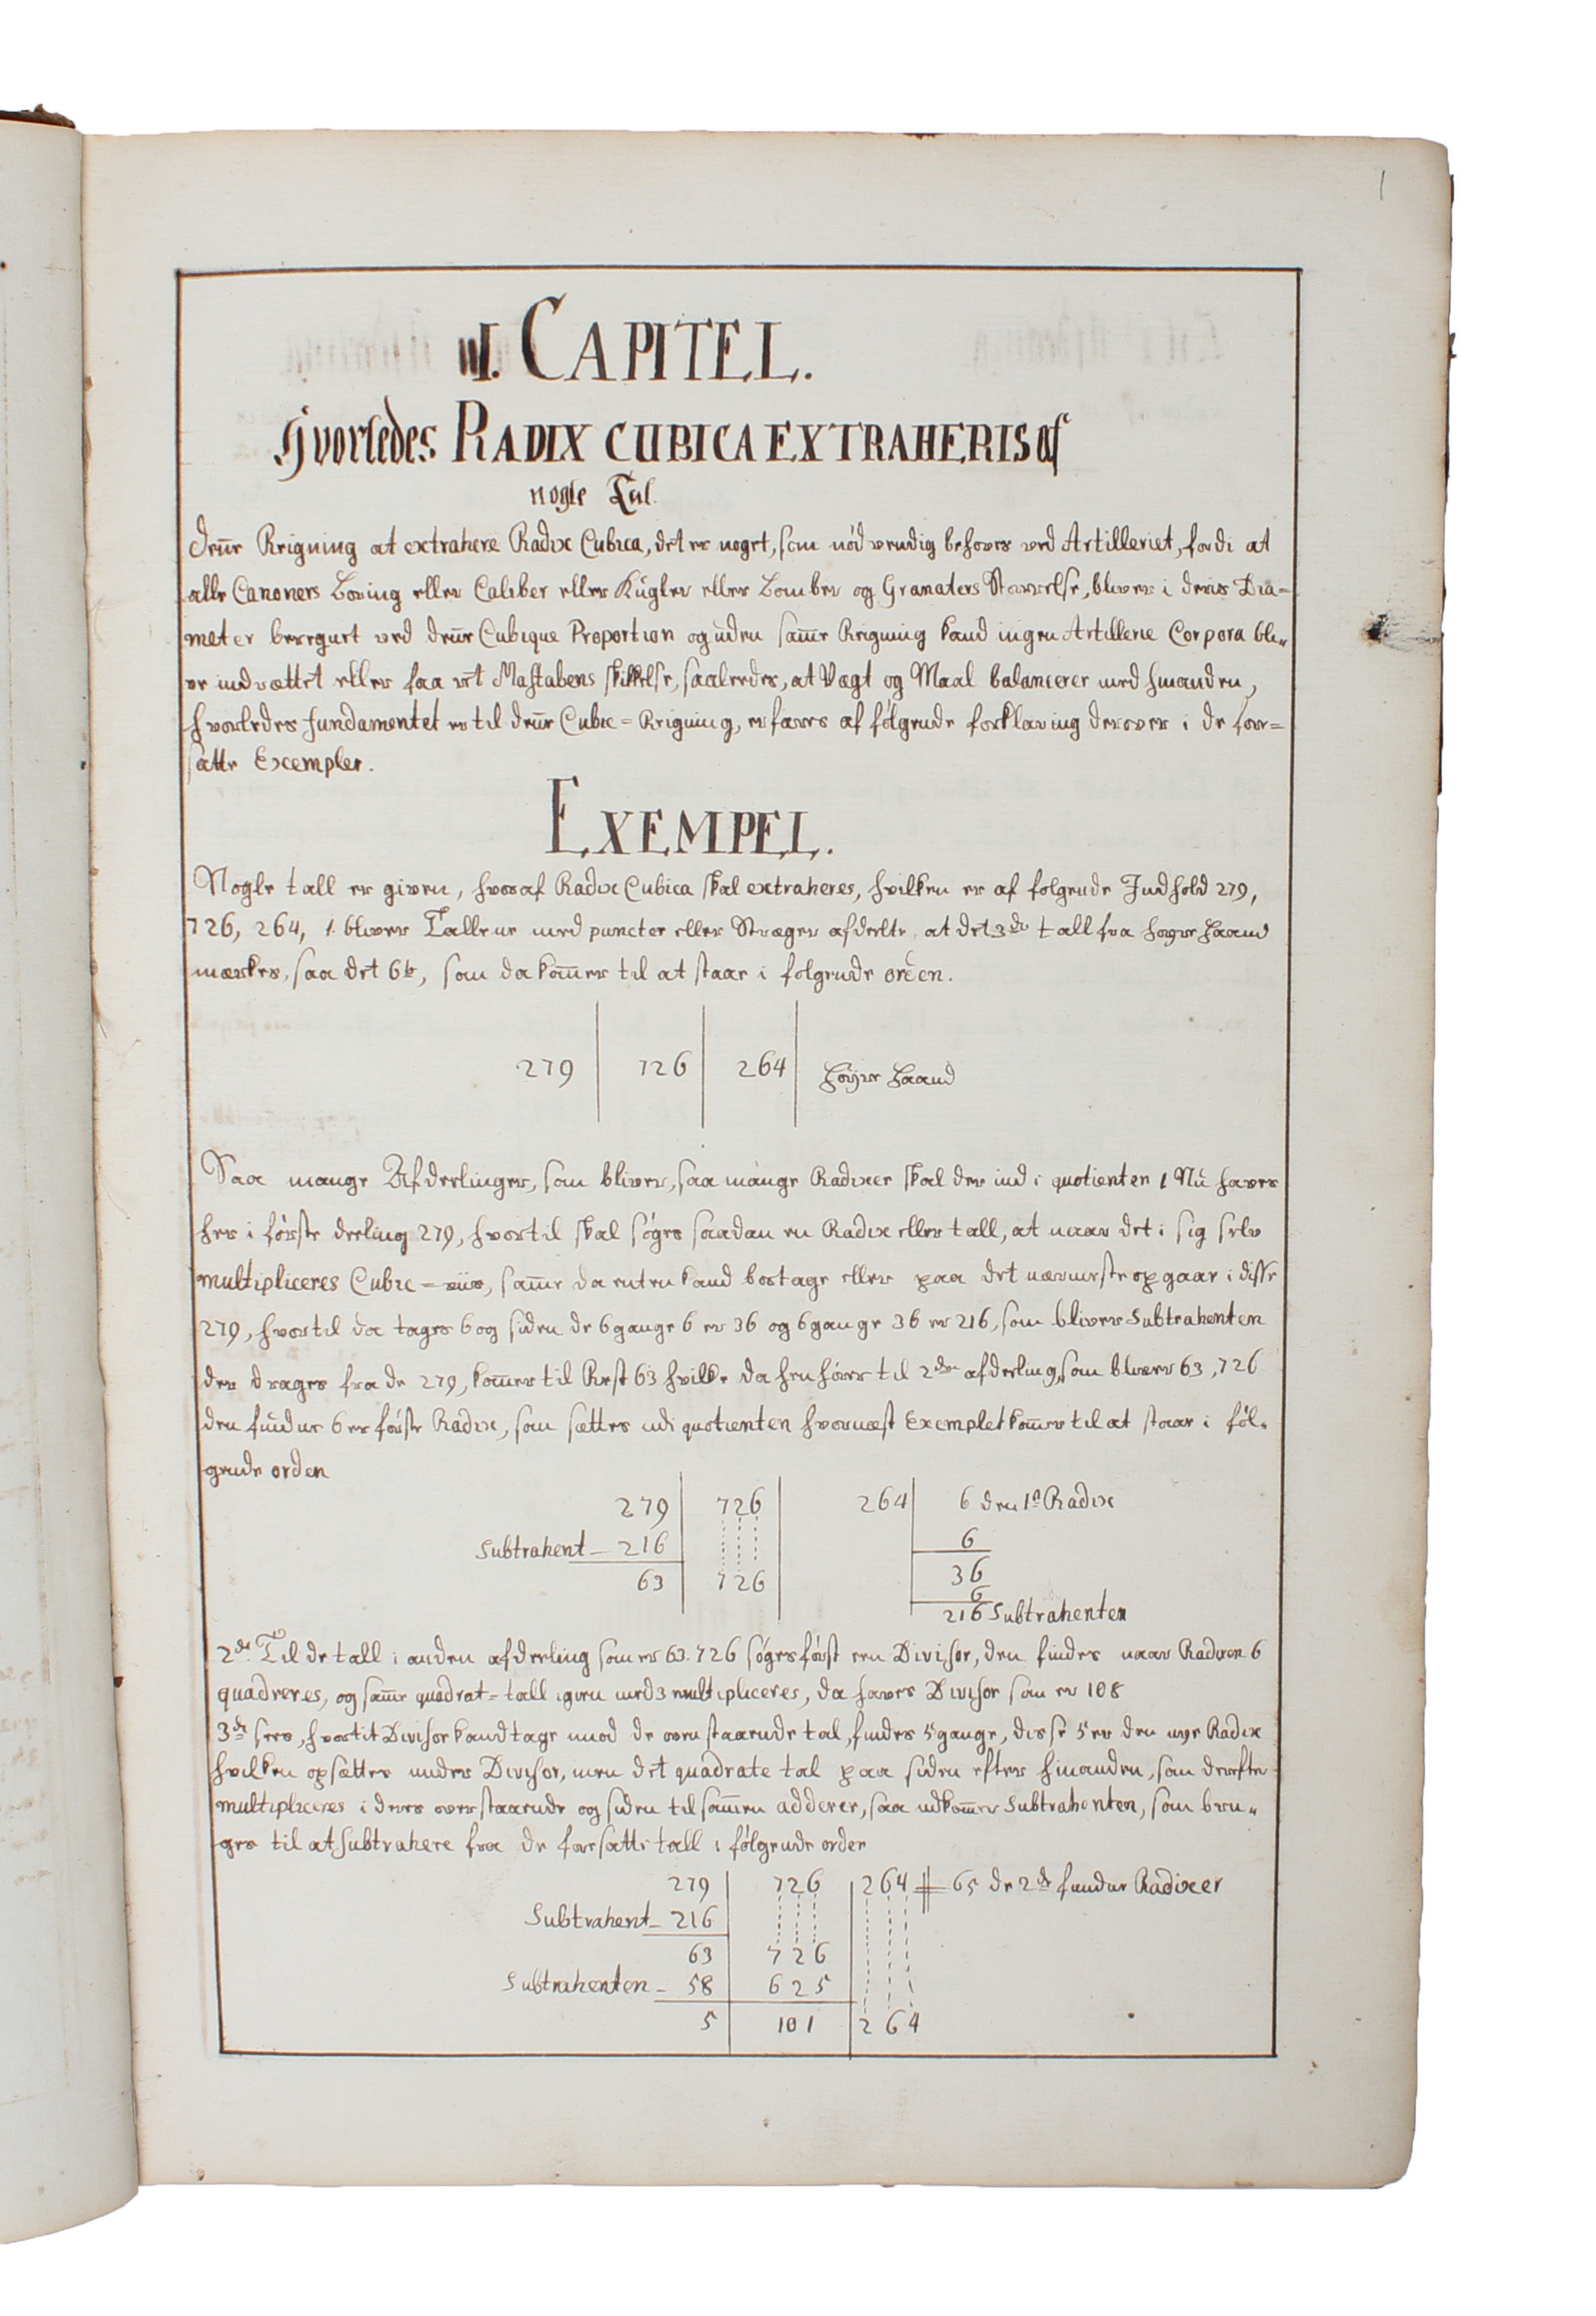 1
I. CAPITEL.
Hvorledes RADIX CUBICA EXTRAHERIS af
nogle Tal.
Denne Reigning at extrahere Radix Cubica, det er noget, som nödvendig behoves ved Artilleriet, fordi at
alle Canoners Boring eller Caliber eller Kugler eller Bomber og Granaters Störrelse, bliver i deris Dia=
meter beregnet ved denne Cubique Proportion og uden same Reigning kand ingen Artillerie Corpora bli„
ve indrættet eller faa ret Mastabens skikkelse, saaledes, at Vægt og Maal balancerer med hinanden,
hvorledes fundamentet er til denne Cubic=Reigning, erfares af fölgende forklaring derover i de fore=
satte Exempler.
EXEMPEL.
Nogle tall er given, hvoraf Radix Cubica skal extraheres, hvilken er af folgende Indhold 279,
726, 264, 1. bliver Tallene med puncter eller Stræger afdeelte, at det 3de tall fra høyre Haand
mærkes, saa det 6te, som da komer til at staar i folgende orden.
279 | 726 | 264 | Höyre Haand
Saa mange Afdeelinger, som bliver, saa mange Radixer skal der ind i quotienten 1 Nu haves
her i förste deeling 279, hvortil skal söges saadan en Radix eller tall, at naar det i sig selv
multipliceres Cubic=viis, same da enten kand bortage eller paa det nærmeste opgaar i disse
279, hvortil da tages 6 og siden de 6 gange 6 er 36 og 6 gange 36 er 216, som bliver Subtrahenten
der drages fra de 279, komer til Rest 63 hvilke da henförer til 2den afdeeling, som bliver 63,726
den fundne 6 er förste Radix, som sættes udi quotienten hvornæst Exemplet komer til at staar i föl„
gende orden
279 | 726 | 264 | 6 den 1te Radix
Subtrahent – 216 6
63 | 726 36
6
216 Subtrahenten
2de Til de tall i anden afdeeling som er 63.726 söges först een Divisor, den findes naar Radixen 6
quadreres, og same quadrat=tall igien med 3 multipliceres, da haves Divisor som er 108
3de sees, hvortit Divisor kand tage mod de ovenstaaende tal, findes 5 gange, disse 5 er den nye Radix
hvilken opsættes under Divisor, men det quadrate tal paa siden efter hinanden, som derefter
multipliceres i deres overstaaende og siden tilsamen adderer, saa udkomer Subtrahenten, som bru„
ges til at Subtrahere fra de foresatte tall i fölgende orden
279 | 726 | 264 65 de 2de fundne Radixer
Subtrahent – 216
63 | 726
Subtrahenten – 58 | 625
5 | 101 | 264